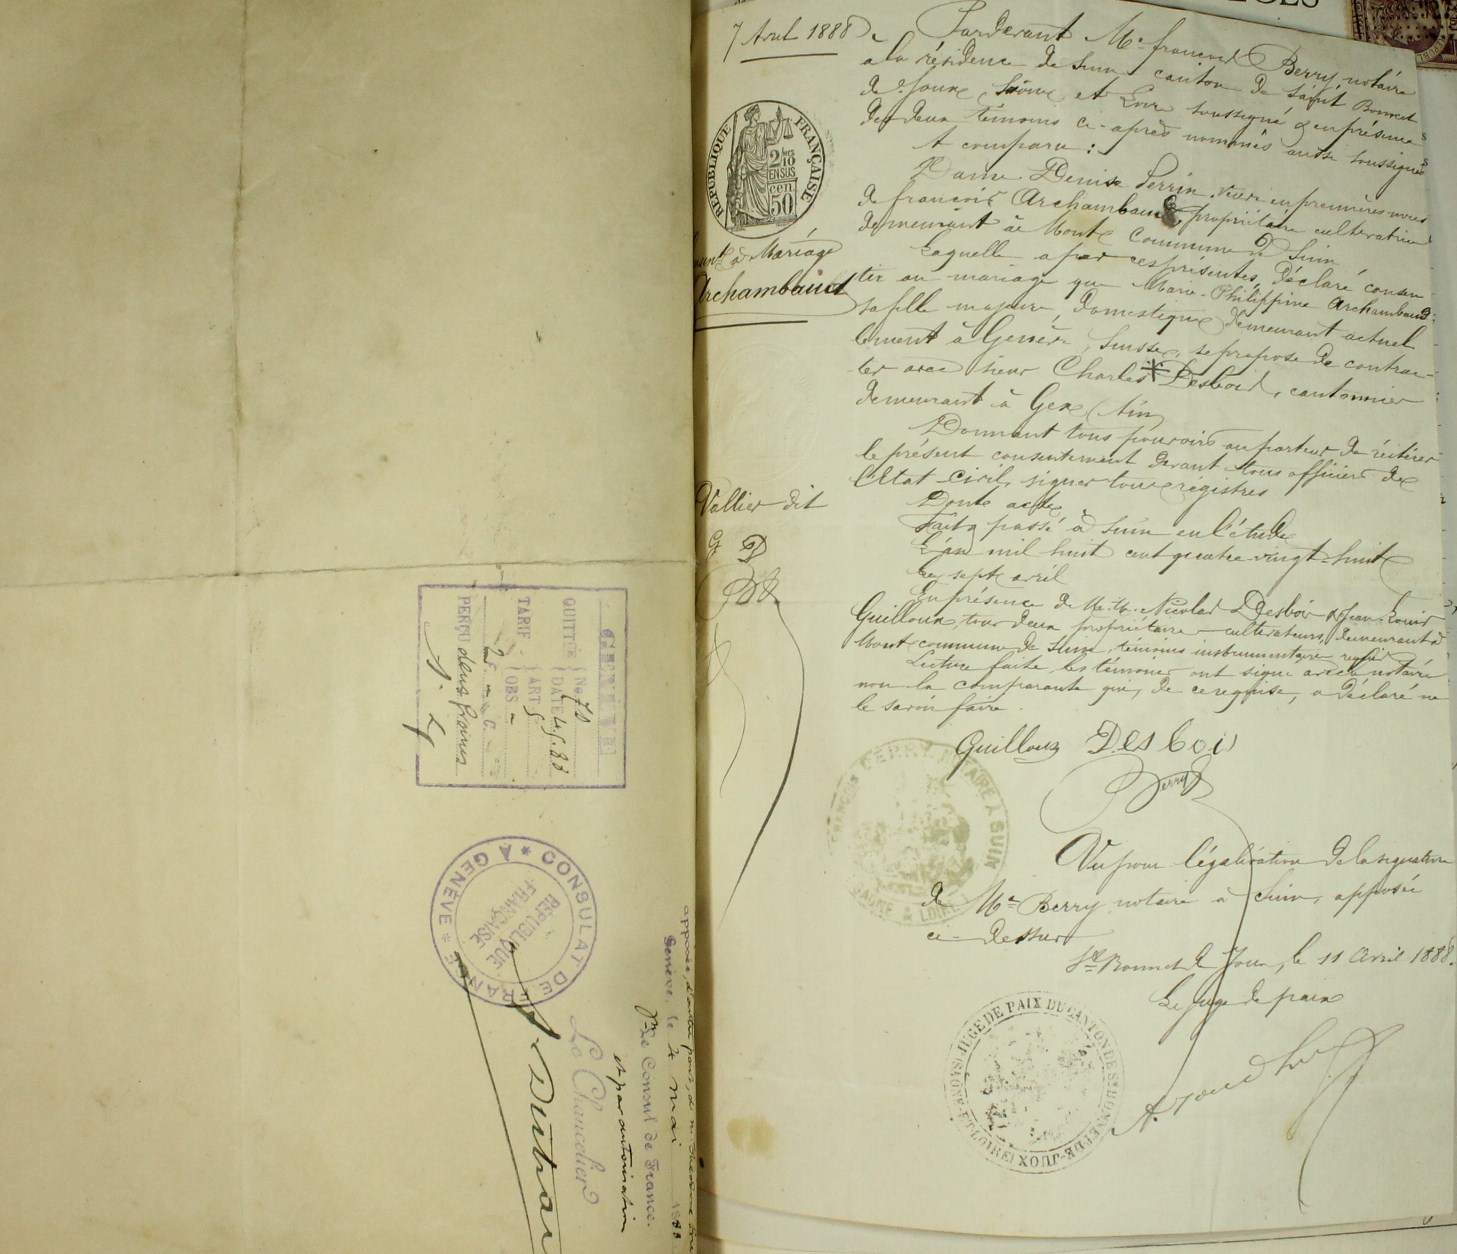 7 Avril 1888
Pardevant Me françois Berry, notaire
à la résidence de Suin canton de Saint Bonnet
de Joux, Saône et Loire soussigné & en présence
des deux témoins ci-après nommés aussi soussignés
A comparu :
Dame Denise Perrin veuve en premières noces
de françois Archambaud, propriétaire cultivatrice
demeurant à Mont commune de Suin
Laquelle a par ces présentes, déclaré consen-
tir au mariage que Marie-Philippine Archambaud,
sa fille majeure, domestique demeurant actuel
lement à Genève, Suisse, se propose de contrac-
ter avec sieur Charles * Desbois, cantonnier
demeurant à Gex (Ain)
Donnant tous pouvoirs au porteur de réitérer
le présent consentement devant tous officiers de
l'Etat-civil, signer tous registres
Dont acte
Fait & passé à Suin en l'étude
L'an mil huit cent quatre-vingt-huit
Le sept avril
En présence de M.M. Nicolas Desbois & Jean-Louis
Guilloux, tous deux propriétaires-cultivateurs, demeurant à
Mont commune de Suin, témoins instrumentaires requis
Lecture faite les témoins ont signé avec le notaire
non la comparante qui, de ce requise, a déclaré ne
le savoir faire.
Guilloux Desbois
Berry
RÉPUBLIQUE FRANÇAISE
2/10
EN SUS
50 cen
à Mariage
Archambaud
Vallier dit
G D
FRANÇOIS BERRY, NOTAIRE À SUIN
SAÔNE & LOIRE
Vu pour légalisation de la signature
de Me Berry notaire à Suin, apposée
ci-dessus
St Bonnet de Joux, le 11 avril 1888.
Le juge de paix
JUGE DE PAIX DU CANTON DE ST BONNET-DE-JOUX (SAÔNE-ET-LOIRE)
GENÈVE
QUITTCE No 70
DATE 4.5.88
TARIF ART 5
OBS -
2 F - C.
PERÇU deux francs
CONSULAT DE FRANCE * À GENÈVE *
RÉPUBLIQUE
FRANÇAISE
apposée, d'autre part, de M.
Genève, le 4 mai 1888
Pr Le Consul de France.
et par autorisation
Le Chancelier